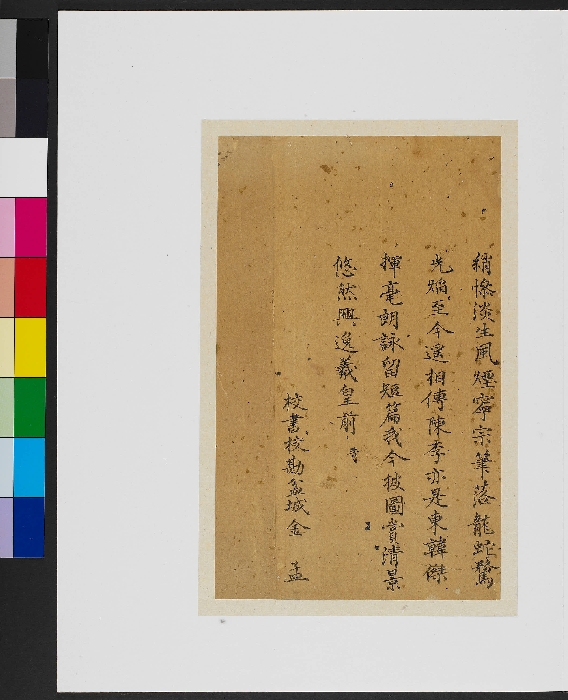 絹慘淡生風煙寧宗筆落龍蛇騖
光焰至今遙相傳陳季亦是東韓傑
揮毫朗詠留短篇我今披圖賞清景
悠然興逸羲皇前
校書校勘盆城金 孟